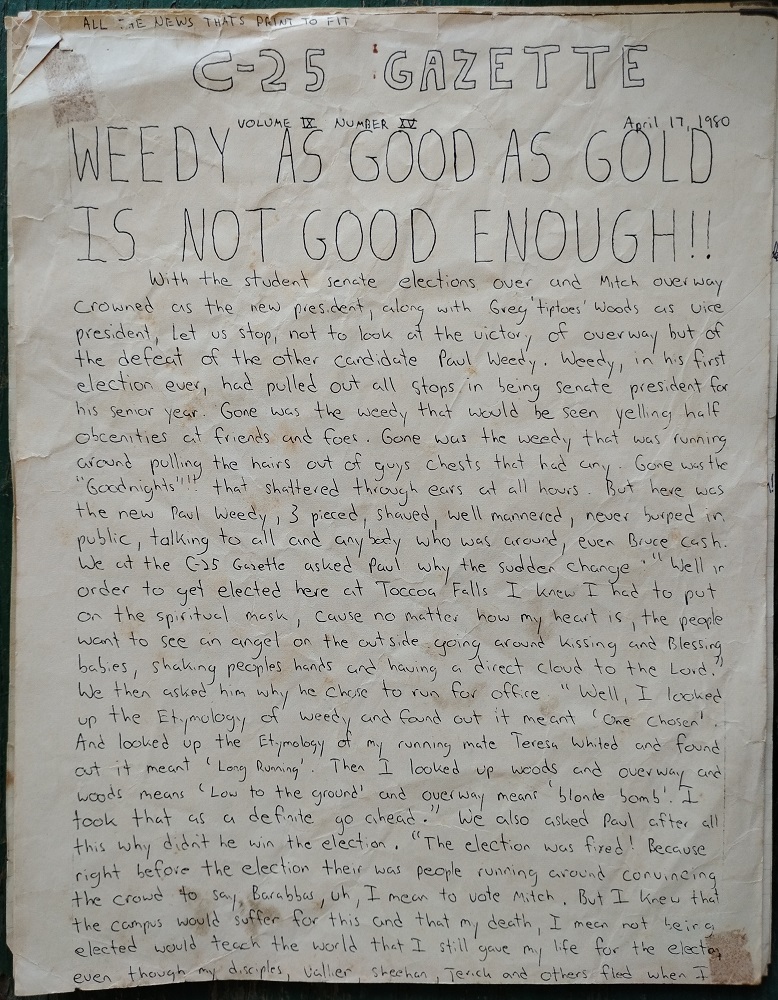 ALL THE NEWS THATS PRINT TO FIT
C-25 GAZETTE
VOLUME IX NUMBER XV April 17, 1980
WEEDY AS GOOD AS GOLD
IS NOT GOOD ENOUGH!!
With the student senate elections over and Mitch overway
Crowned as the new president, along with Greg 'tiptoes' Woods as vice
president, Let us stop, not to look at the victory of overway but of
the defeat of the other candidate Paul Weedy. Weedy, in his first
election ever, had pulled out all stops in being senate president for
his senior year. Gone was the weedy that would be seen yelling half
obcenities at friends and foes. Gone was the weedy that was running
around pulling the hairs out of guys chests that had any. Gone was the
"Goodnights"!!" that shattered through ears at all hours. But here was
the new Paul Weedy, 3 pieced, shaved, well mannered, never burped in
public, talking to all and anybody who was around, even Bruce Cash.
We at the C-25 Gazette asked Paul why the sudden change. "Well in
order to get elected here at Toccoa Falls I knew I had to put
on the spiritual mask, cause no matter how my heart is, the people
want to see an angel on the outside going around kissing and Blessing
babies, shaking peoples hands and having a direct cloud to the Lord."
We then asked him why he chose to run for office. "Well, I looked
up the Etymology of weedy and found out it meant 'One Chosen'.
And looked up the Etymology of my running mate Teresa Whited and found
out it meant 'Long Running'. Then I looked up woods and overway and
woods means 'Low to the ground' and overway means 'blonde bomb'. I
took that as a definite go ahead." We also asked Paul after all
this why didn't he win the election. "The election was fixed! Because
right before the election their was people running around convincing
the crowd to say, Barabbas, uh, I mean to vote Mitch. But I knew that
the campus would suffer for this and that my death, I mean not being
elected would teach the world that I still gave my life for the elector
even though my disciples, Vallier, Sheehan, Jerich and others fled when I